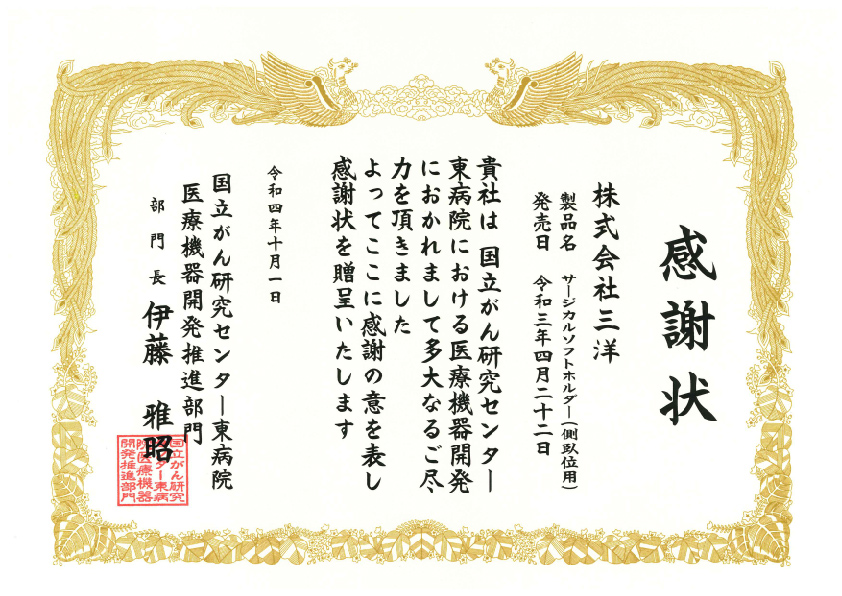 感謝状
株式会社三洋
製品名 サージカルソフトホルダー(側臥位用)
発売日 令和三年四月二十二日
貴社は 国立がん研究センター
東病院における医療機器開発
におかれまして多大なるご尽
力を頂きました
よってここに感謝の意を表し
感謝状を贈呈いたします
令和四年十月一日
国立がん研究センター東病院
医療機器開発推進部門
部門長 伊藤 雅昭
国立がん研究
センター東病
院医療機器
開発推進部門